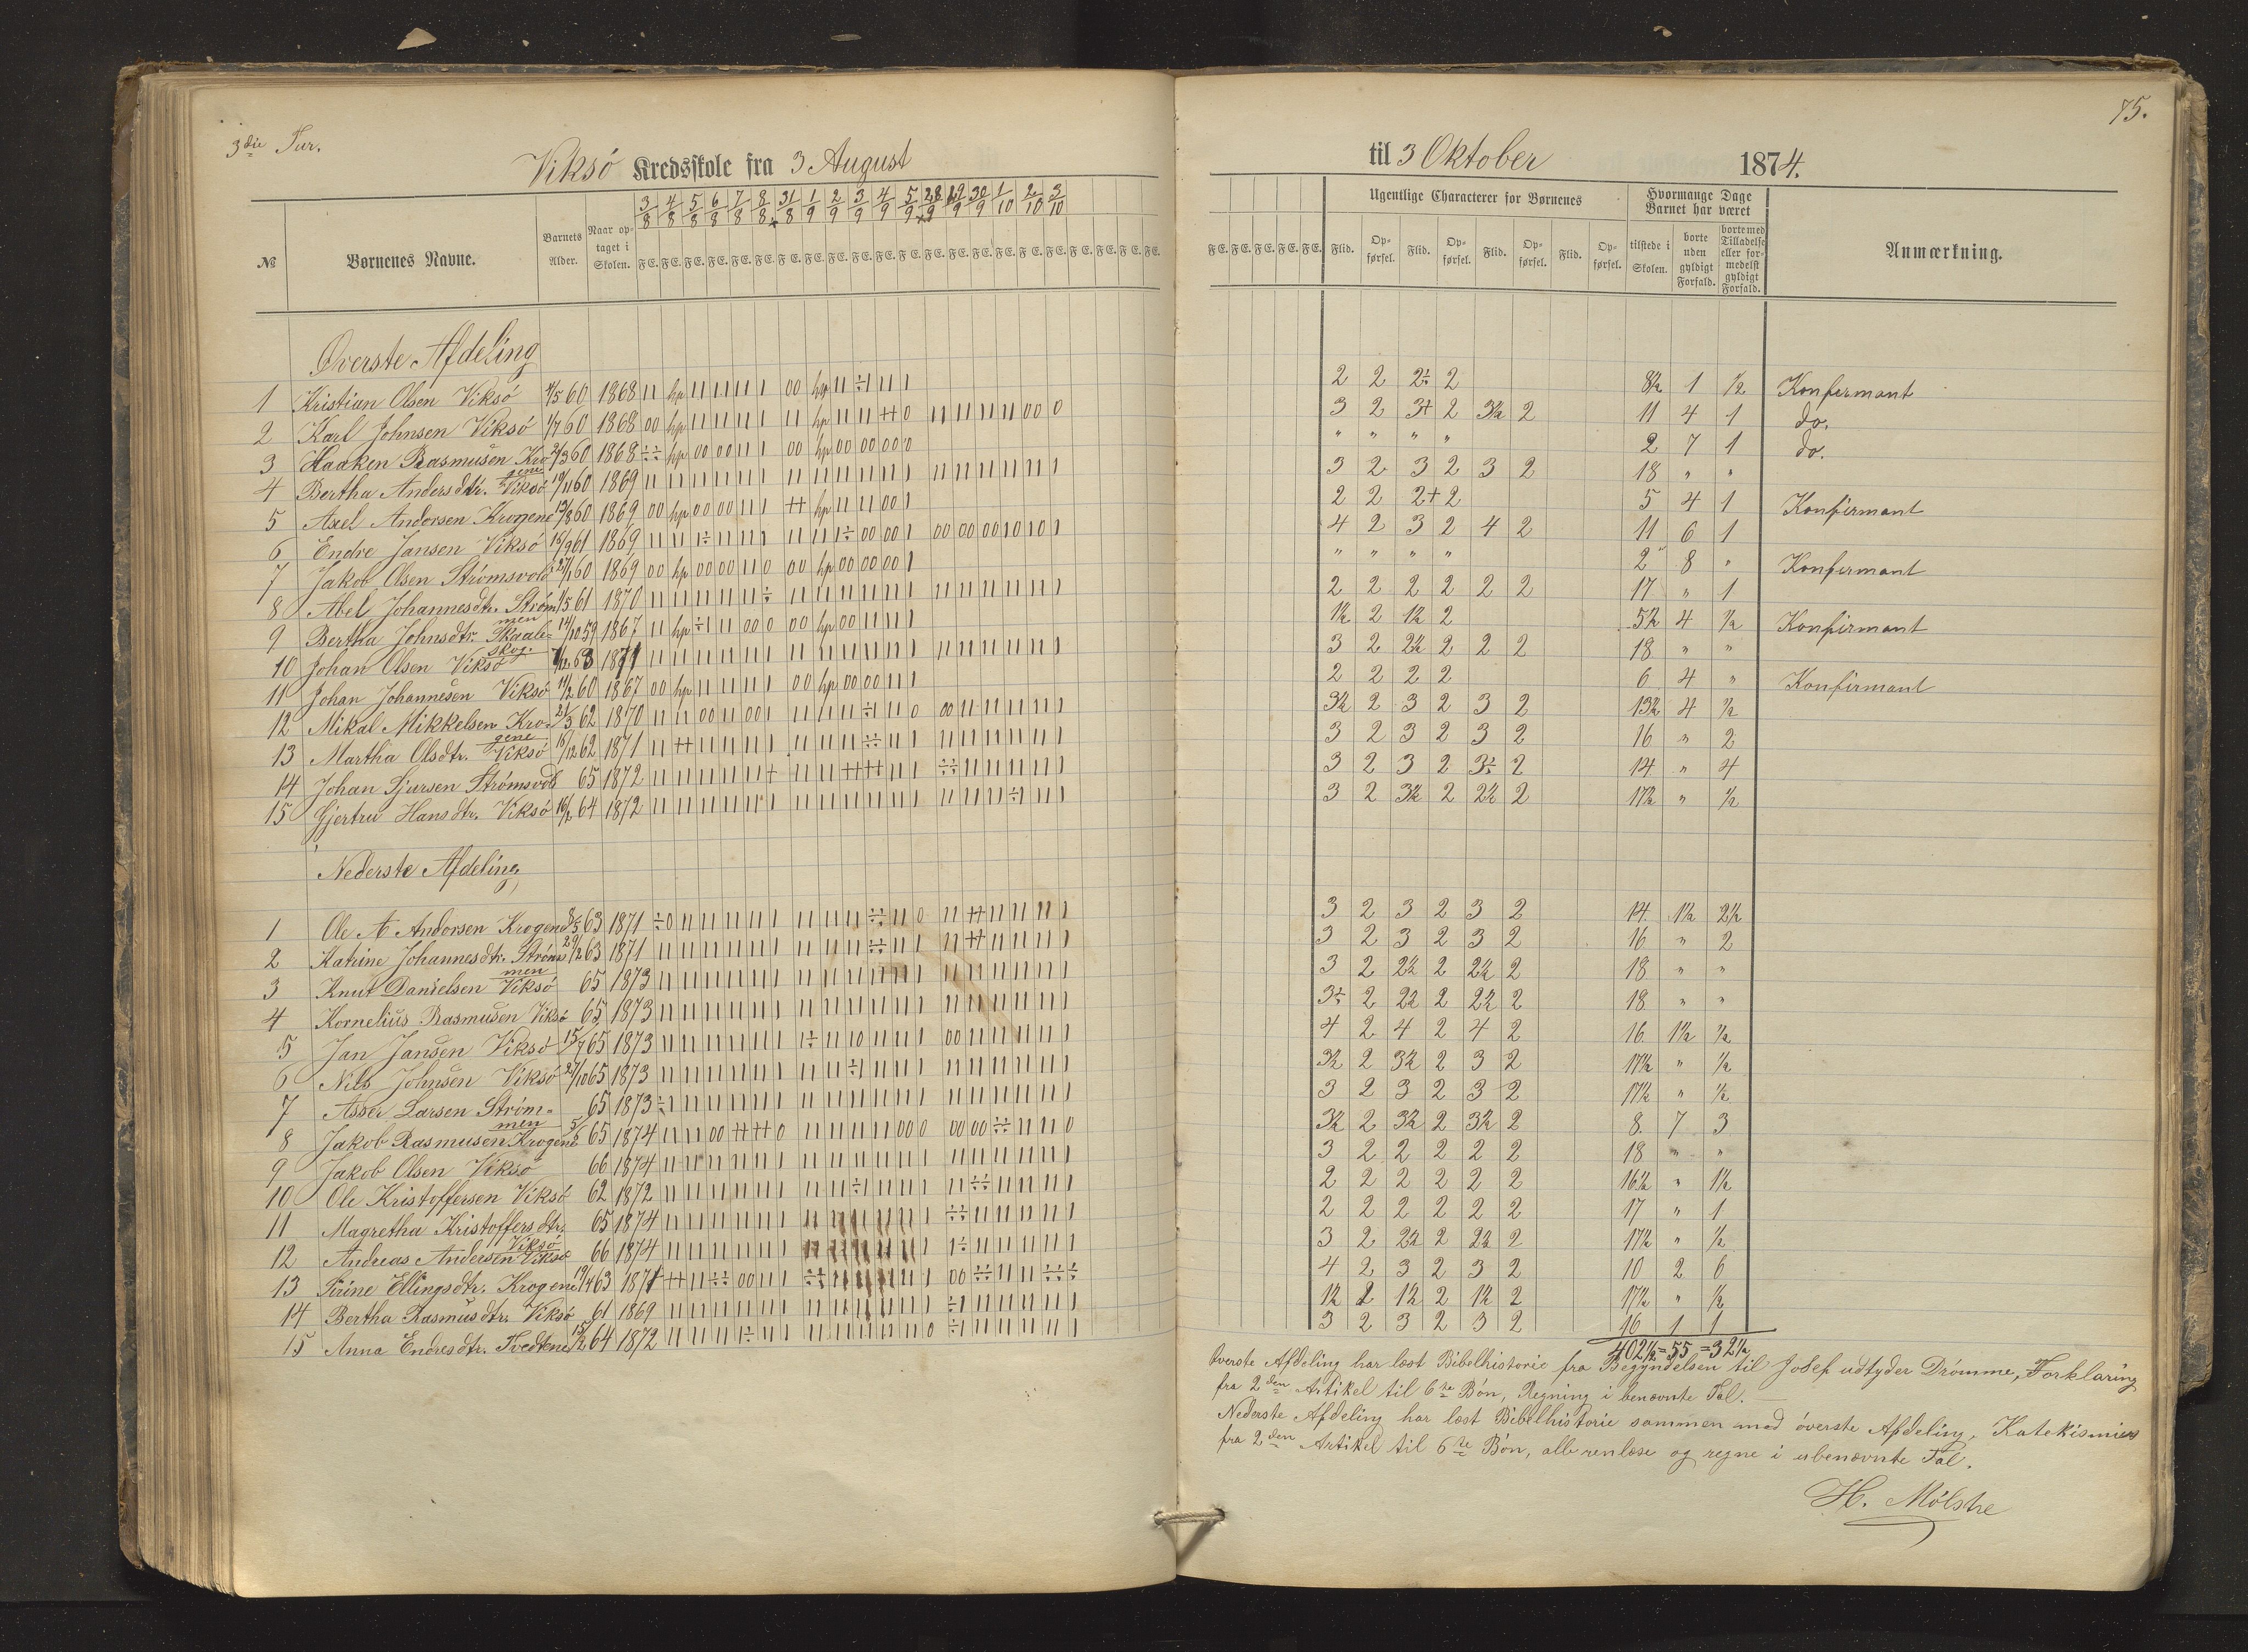 3die Tur.
75.
Viksö Kredsskole fra 3 August til 3 Oktober 1874.
№ Børnenes Navne. Barnets Alder. Naar optaget i Skolen. 3/8 4/8 5/8 6/8 7/8 8/8 31/8 1/9 2/9 3/9 4/9 5/9 28/9 29/9 30/9 1/10 2/10 3/10
F E. F E. F E. F E. F E. F E. F E. F E. F E. F E. F E. F E. F E. F E. F E. F E. F E. F E. F E. F E. F E. F E.
F E. F E. F E. F E. F E. Ugentlige Characterer for Børnenes Flid. Opførsel. Flid. Opførsel. Flid. Opførsel. Flid. Opførsel.
Hvormange Dage Barnet har været tilstede i Skolen. borte uden gyldigt Forfald. borte med Tilladelse eller formedelst gyldigt Forfald. Anmærkning.
Øverste Afdeling
1 Kristian Olsen Viksö 4/5 60 1868 2 2 2÷ 2 8½ 1 ½ Konfirmant
2 Karl Johnsen Viksö 1/7 60 1868 3 2 3+ 2 3½ 2 11 4 1 do.
3 Haaken Rasmusen Krogene 21/3 60 1868 " " " " 2 7 1 do.
4 Bertha Andersdtr. Viksö 19/11 60 1869 3 2 3 2 3 2 18 " "
5 Axel Andorsen Krogene 13/8 60 1869 2 2 2+ 2 5 4 1 Konfirmant
6 Endre Jansen Viksö 16/9 61 1869 4 2 3 2 4 2 11 6 1
7 Jakob Olsen Strømsvold 27/1 60 1869 " " " " 2 8 " Konfirmant
8 Abel Johannesdtr. Strømmen 1/5 61 1870 2 2 2 2 2 2 17 " 1
9 Bertha Johnsdtr. Skaaleskog. 14/10 59 1867 1½ 2 1½ 2 5½ 4 ½ Konfirmant
10 Johan Olsen Viksö 7/12 63 1871 3 2 2½ 2 2 2 18 " "
11 Johan Johannesen Viksö 11/2 60 1867 2 2 2 2 6 4 " Konfirmant
12 Mikal Mikkelsen Krogene 21/3 62 1870 3½ 2 3 2 3 2 13½ 4 ½
13 Martha Olsdtr. Viksö 18/12 62 1871 3 2 3 2 3 2 16 " 2
14 Johan Sjursen Strømsvold 65 1872 3 2 3 2 3÷ 2 14 " 4
15 Gjertru Hansdtr. Viksö 16/2 64 1872 3 2 3½ 2 2½ 2 17½ " ½
Nederste Afdeling
1 Ole A Andorsen Krogene 8/5 63 1871 3 2 3 2 3 2 14 1½ 2½
2 Katrine Johannesdtr. Strømmen 29/12 63 1871 3 2 3 2 3 2 16 " 2
3 Knut Danielsen Viksö 65 1873 3 2 2½ 2 2½ 2 18 " "
4 Kornelius Rasmusen Viksö 65 1873 3÷ 2 2½ 2 2½ 2 18 " "
5 Jan Jansen Viksö 15/7 65 1873 4 2 4 2 4 2 16 1½ ½
6 Nils Johnsen Viksö 27/10 65 1873 3½ 2 3½ 2 3 2 17½ " ½
7 Asser Larsen Strømmen 65 1873 3 2 3 2 3 2 17½ " ½
8 Jakob Rasmusen Krogene 65 1874 3½ 2 3½ 2 3½ 2 8 7 3
9 Jakob Olsen Viksö 66 1874 3 2 2 2 2 2 18 " "
10 Ole Kristoffersen Viksö 62 1872 2 2 2 2 2 2 16½ " 1½
11 Magretha Kristoffersdtr. Viksö 65 1874 2 2 2 2 2 2 17 " 1
12 Andreas Andersen Viksö 66 1874 3 2 2½ 2 2½ 2 17½ " ½
13 Sirine Ellingsdtr. Krogene 19/4 63 1871 4 2 3 2 3 2 10 2 6
14 Bertha Rasmusdtr. Viksö 61 1869 1½ 2 1½ 2 1½ 2 17½ " ½
15 Anna Endresdtr. Tvedtene 15/2 64 1872 3 2 3 2 3 2 16 1 1
402½ = 55 = 32½
Øverste Afdeling har læst Bibelhistorie fra Begyndelsen til Josef udtyder Drömme, Forklaring
fra 2den Artikel til 6te Bön, Regning i benævnte Tal.
Nederste Afdeling har læst Bibelhistorie sammen med överste Afdeling, Katekismus
fra 2den Artikel til 6te Bön, alle renlæse og regne i ubenævnte Tal.
H. Mölstre